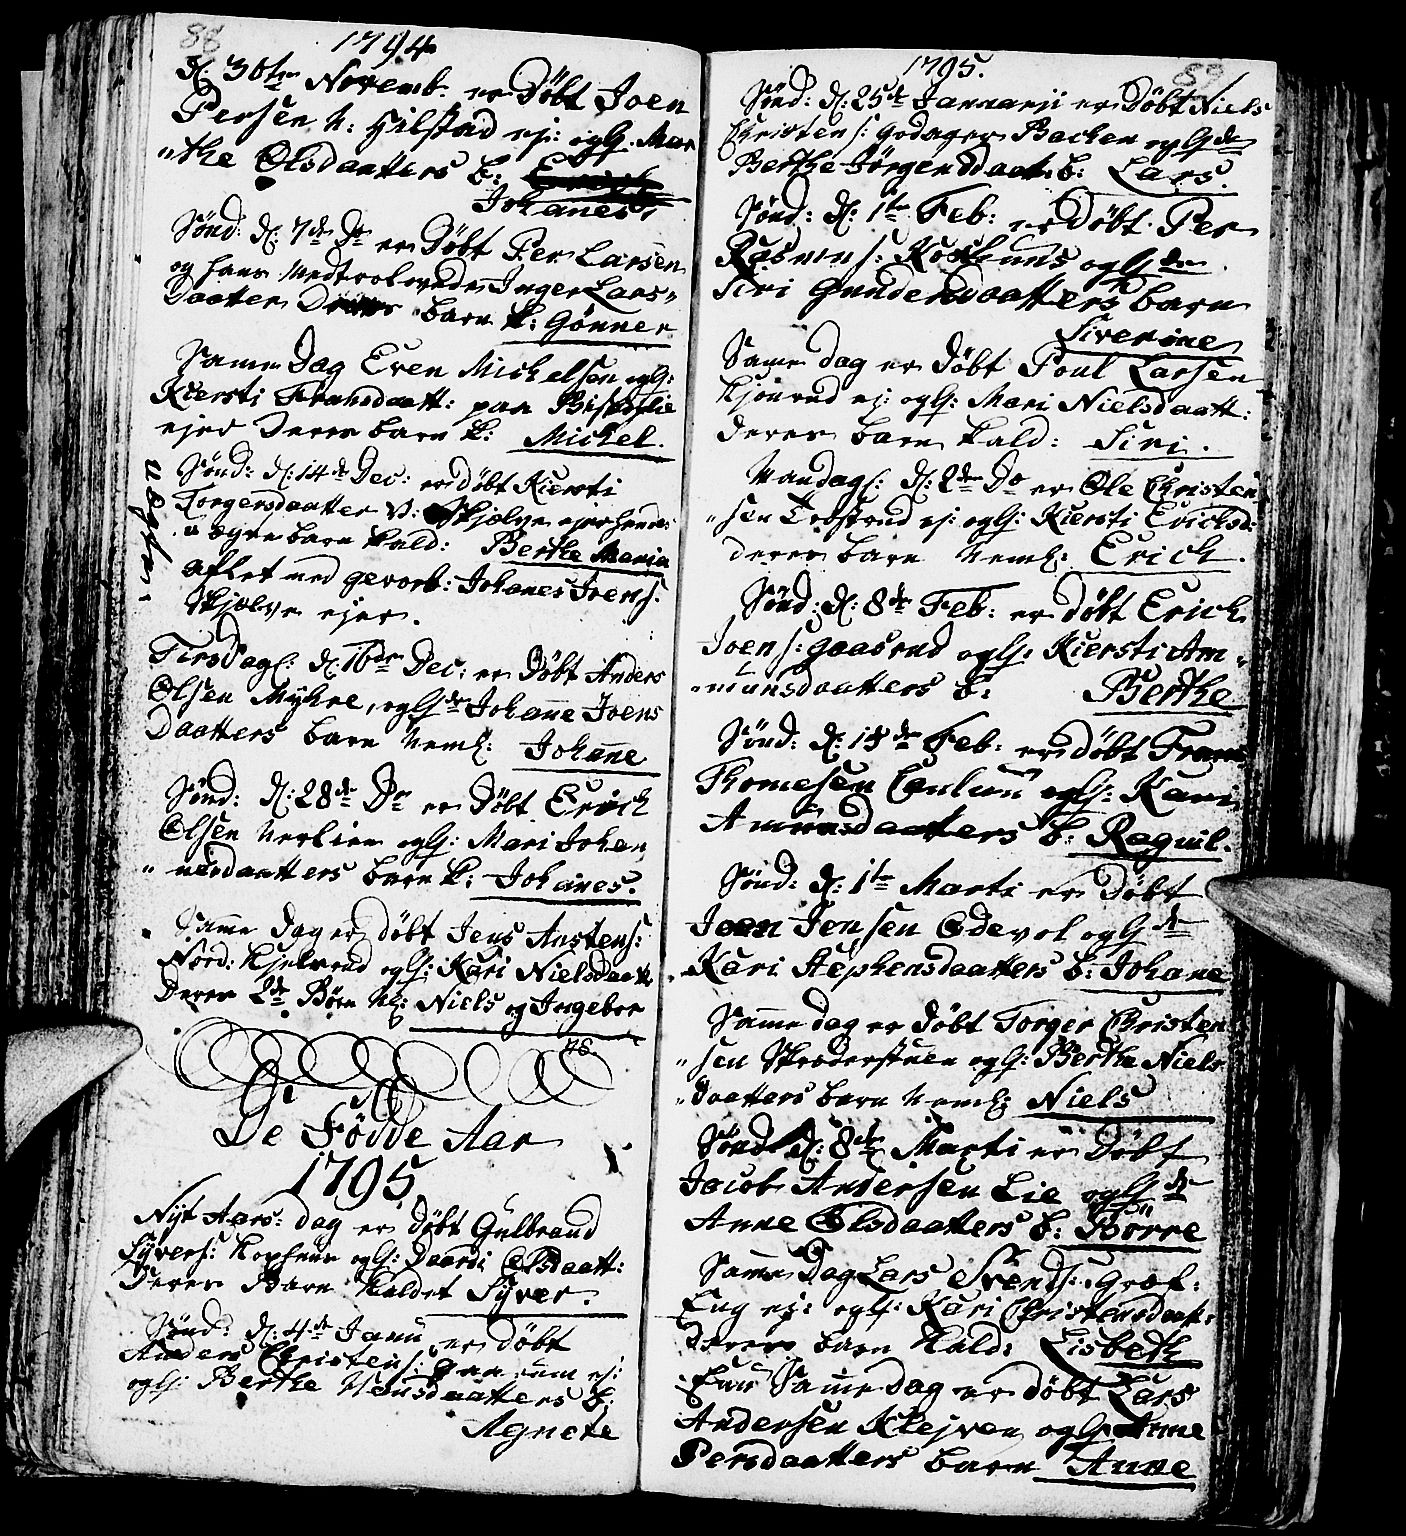 88
1794
d: 30ten Novemb: er Døbt Joen
Persen N: Hilstad ej: oglh. Mar
"the Olsdaatters b:
Johanes.
Sønd: d: 7de Do er Døbt Per Larsen
og hans Medtrolovede Inger Lars"
Daatter barn k: Gønner
Same Dag Even Michelsen oglh:
Kiersti Fransdaatt: paa
ejer Deres barn k: Michel.
Sønd: d: 14de Dec: er døbt Kiersti
Torgersdaatter N: Skjølve ejer hendes
u ægte barn kald: Berthe Maria
uægte.
aflet med gevorb: Johanes Ivers:
Skjølve ejer.
Tirsdag: d: 16de Dec: er Døbt Anders
Olsen Myhre, oglhde Johanne Joens
Daatters barn Neml: Johane
Sønd: d: 28de Do er Døbt Erich
Olsen Verlien oglh: Mari Johan
" nesdaatters barn k: Johanes.
Same Dag er døbt Jens Anstens:
Nord: Kjelsrud oglh: Kari Nielsdaatt
Deres 2de Børn Nl: Niels og Ingebor
De Fødde Aar
1795
Nyt Aars: dag er døbt Gulbrand
Syvers: oglh: Olsdaatt:
Deres Barn Kaldet Syver.
Sønd: d: 4de Janu er døbt
Anders Christens: ej:
oglh: Berthe Hansdaatters b:
Agnete
1795.
89
Sønd: d: 25de Januarii er Døbt Niels
Christens: Godager Backen oglhde
Berthe Jørgensdaat: b: Lars.
Sønd: d: 1te Feb: er Døbt Per
Rasmus: oglhde
Siri Gundersdaatters barn
Siverine
Same dag er døbt Poul Larsen
Kjønrud ej: oglh: Mari Nielsdaatt:
deres barn kald: Siri.
Mandag: d: 2de Do er Ole Christen
"sen ej: oglh: Kiersti Ericksd:
deres barn Neml: Erich.
Sønd: d: 8de Feb: er døbt Erich
Joens: Gaasrud oglh: Kiersti Am"
"munsdaatters b: Berthe
Sønd: d: 15de Feb: er døbt Frans
Thomesen oglh: Kari
Amunsdaatters b: Raguil.
Sønd: d: 1te Marti er Døbt
Joen Jensen Odevol oglhde
Kari Stephensdaatters b: Johane
Same dag er døbt Torger Christen
"sen Skræderstuen oglh: Berthe Niels
"daatters barn Neml: Niels
Sønd d: 8de Marti er Døbt
Jacob Andersen Lie oglhde
Anne Olsdaatters b: Börre
Same Dag Lars Svends: Græs:
Eng ej: oglh: Kari Christensdaatt:
deres barn Kald: Lisbeth
Same dag er døbt Lars
Andersen Klejven oglh: Anne
Persdaatters barn Anne